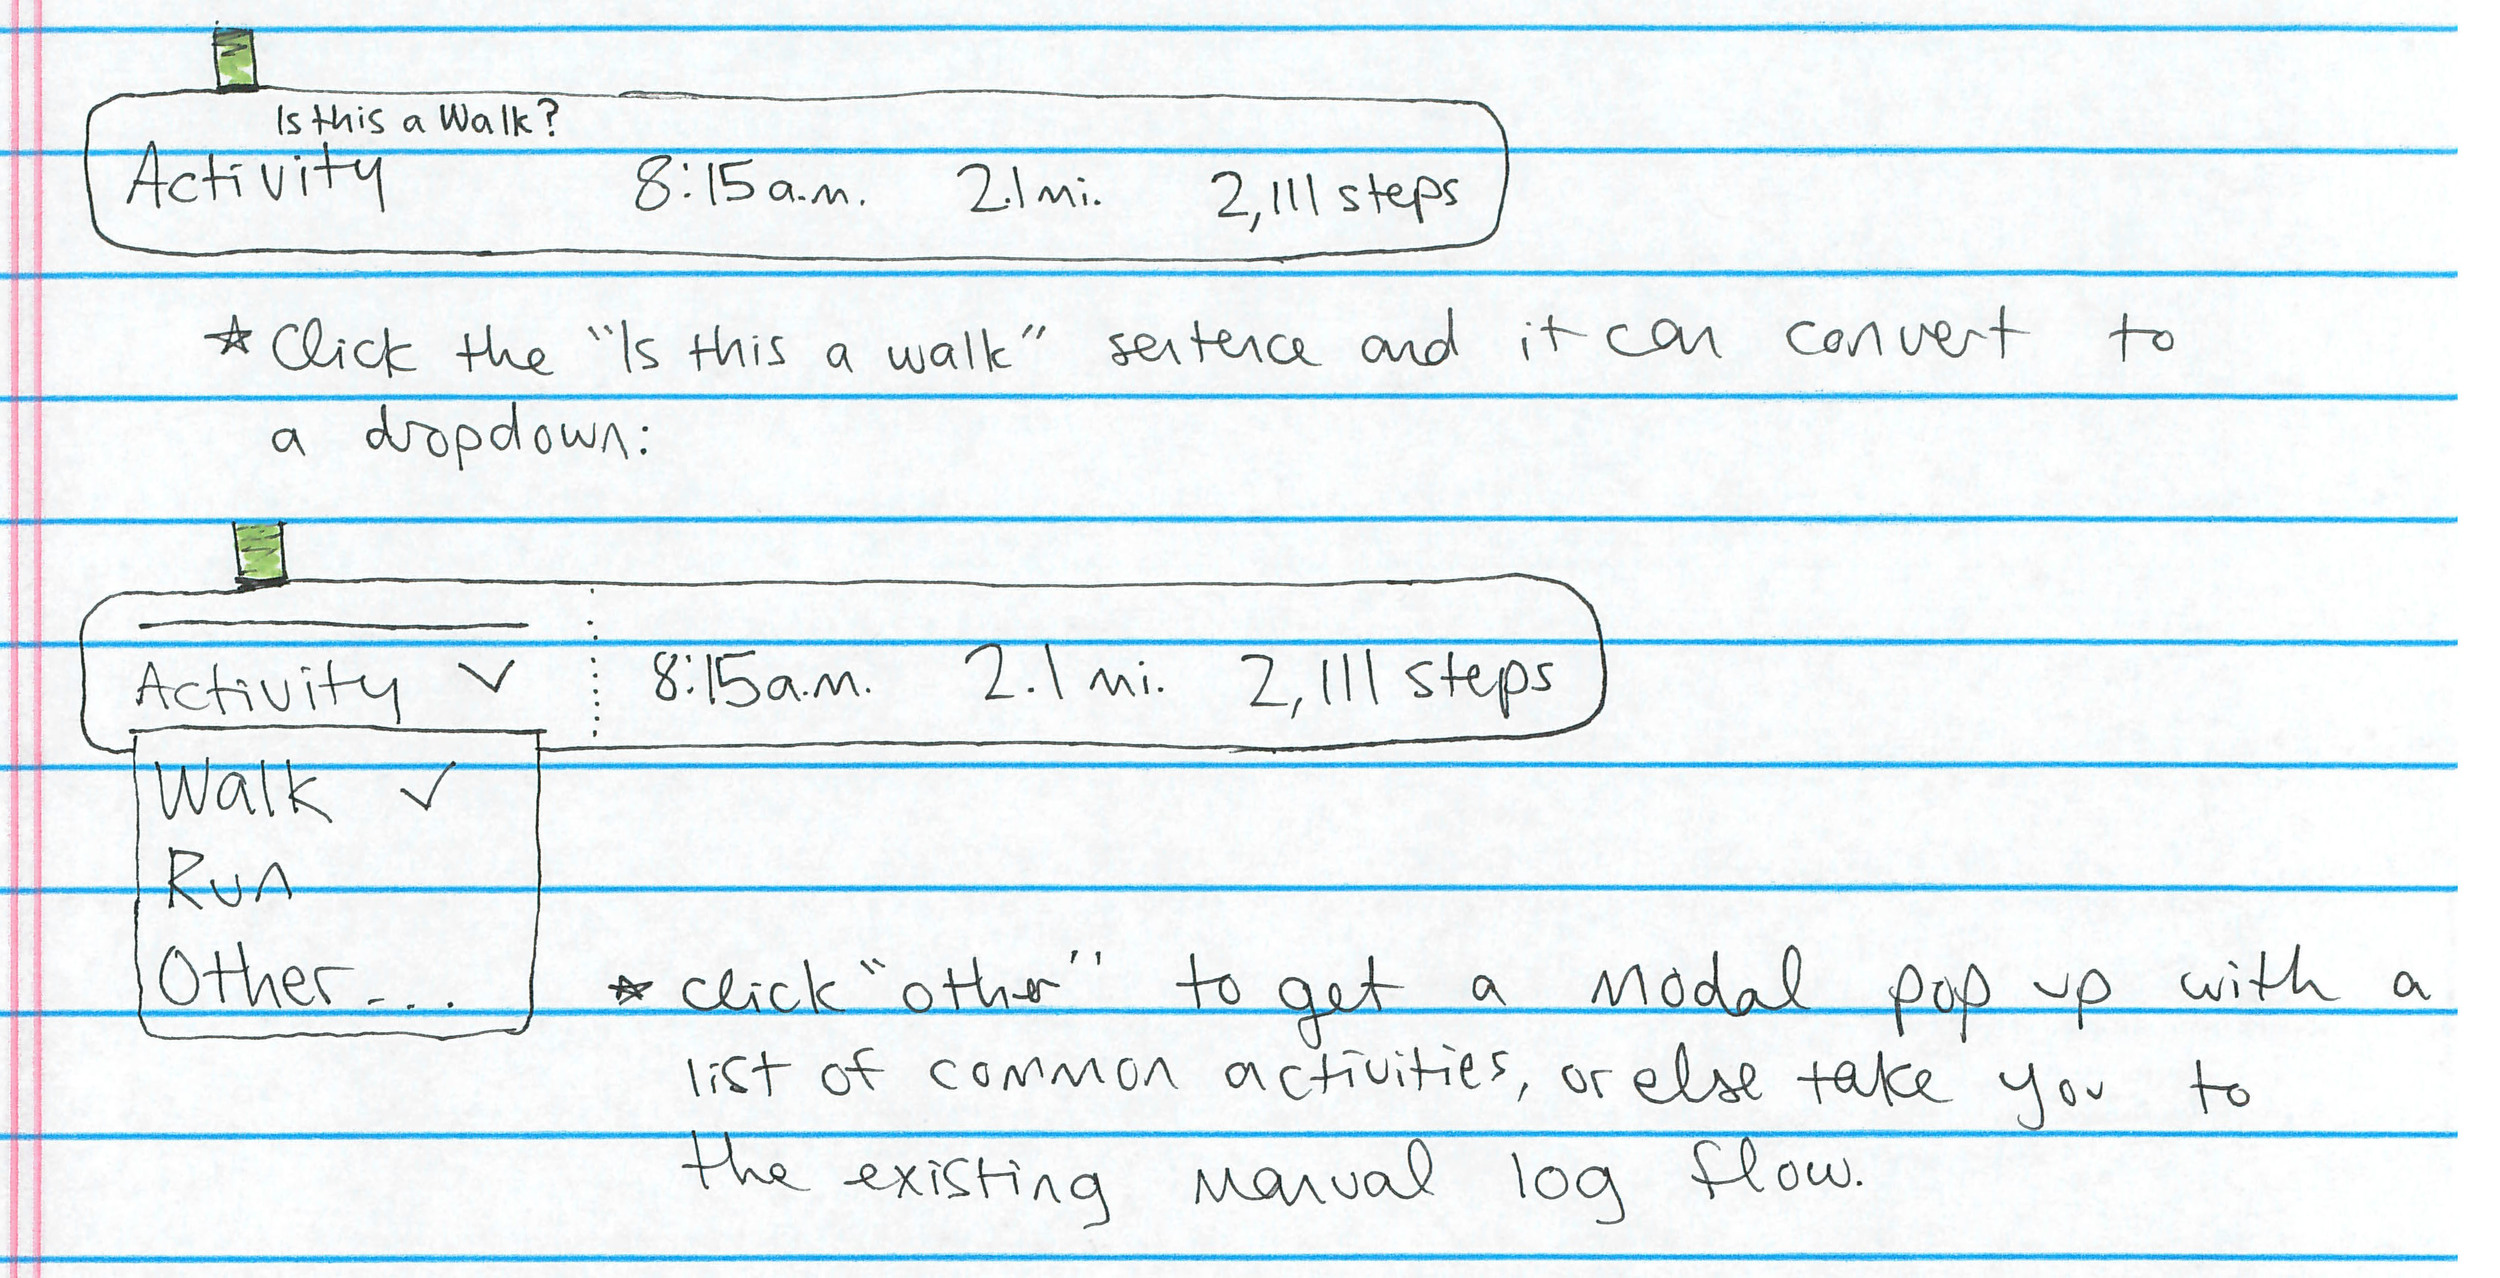 Is this a Walk?
Activity 8:15a.m. 2.1mi. 2,111 steps
* Click the "Is this a walk" sentence and it can convert to
a dropdown:
Activity 8:15a.m. 2.1 mi. 2,111 steps
Walk ✓
Run
Other...
* click "other" to get a modal pop up with a
list of common activities, or else take you to
the existing manual log flow.